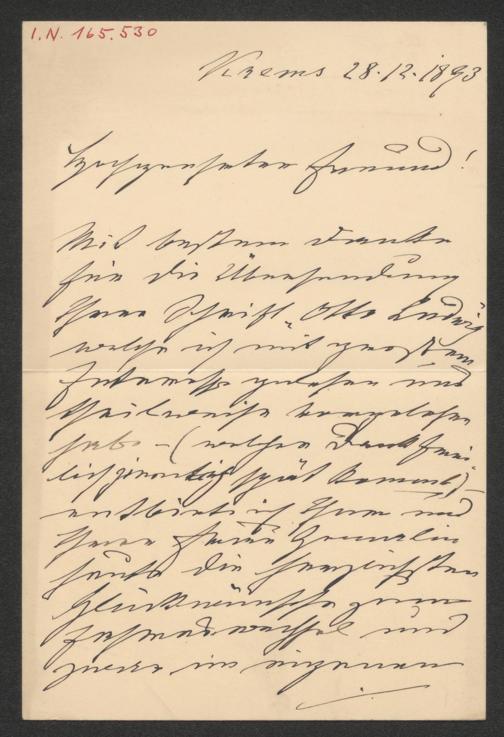 I.N. 165.530
Krems 28.12.1893
Hochgeehrter Freund!
Mit bestem Danke
für die Übersendung
Ihrer Schrift „Otto Ludwig
welche ich mit grossem
Interesse gelesen und
theilweise vorgelesen
habe – (welcher Dank frei-
lich spät kommt)
entbiete ich Ihnen und
Ihrer Frau Gemalin
heute die herzlichsten
Glückwünsche zum
Jahreswechsel und
zwar im eigenen